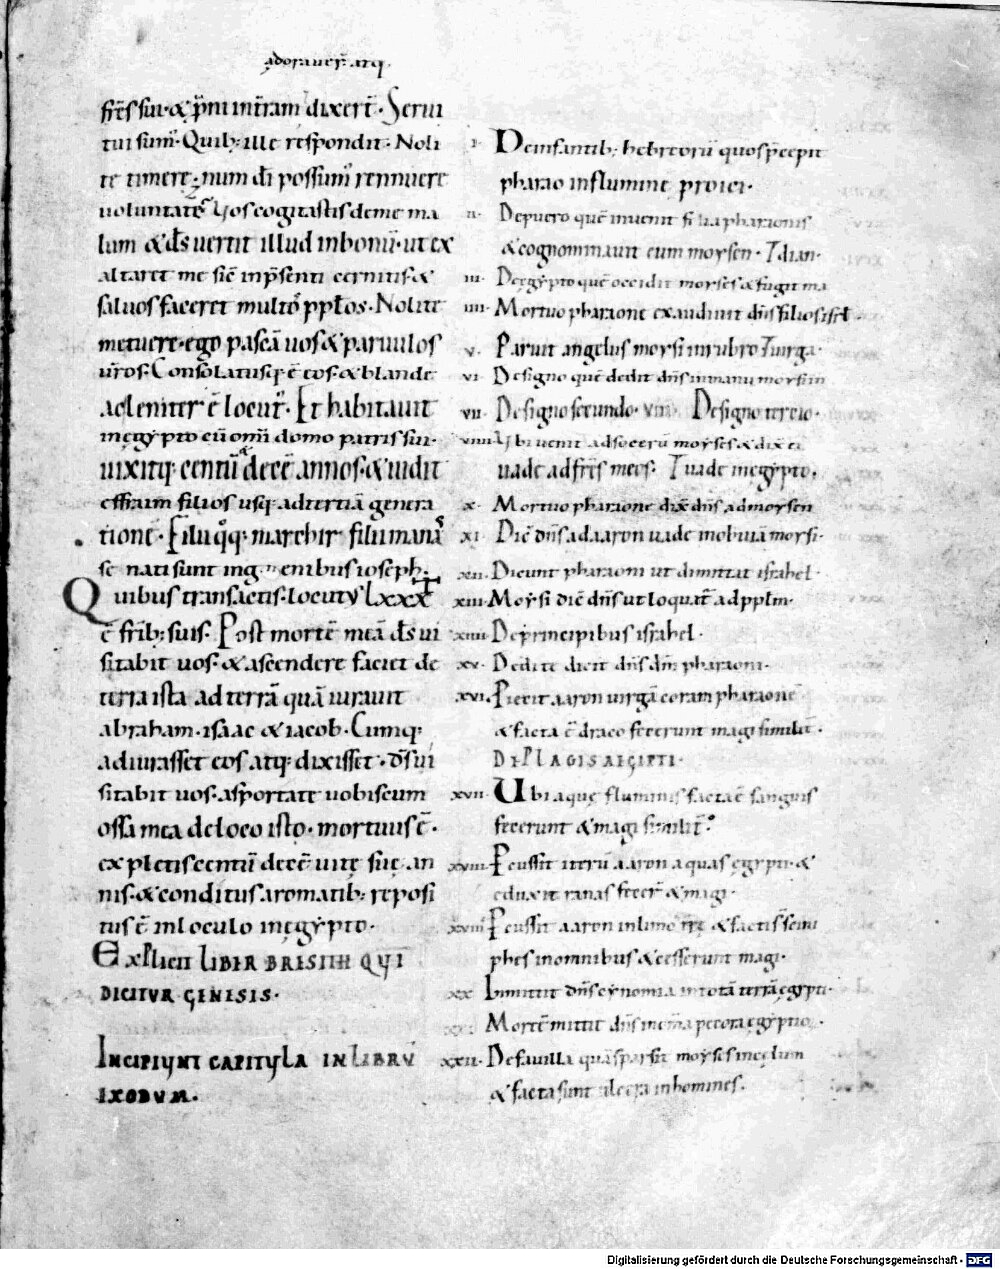 adoraver̄ atq;
fr̄es sui · & p̄ni in t̄ram dixer̄t · Serui
tui sum᷒ · Quib; ille respondit · Noli
te timere; num d̄i possum᷒ rennuere
uoluntatē · Uos cogitastis de me ma
lum & d̄s uertit illud in bonū · ut ex
altaret me sic̄ inp̄senti cernitis · &
saluos faceret multos pp̄los · Nolite
metuere · ego pascā uos & paruulos
ūros · Consolatusq; ē eos · & blande
ac leniter ē locut᷒ · Et habitauit
in ęgypto cū om̄i domo patris sui ·
uixitq; centū decē annos · & uidit
effraim filios usq; ad tertiā genera
tionē · Filii q̊q; machir filii manas
se nati sunt in genibus ioseph ·
Quibus transactis · locut᷒ LXXX
ē fr̄ib; suis · Post mortē meā d̄s ui
sitabit uos · & ascendere faciet de
terra ista ad terrā quā iurauit
abraham · isaac & iacob · Cumq;
adiurasset eos atq; dixisset · D̄s ui
sitabit uos · asportate uobiscum
ossa mea de loco isto · mortuus ē ·
expletis centū decē uitę suę an
nis · & conditus aromatib; reposi
tus ē in loculo in ęgypto ·
EXPLICIT LIBER BRESITH QUI
DICITUR GENESIS ·
INCIPIUNT CAPITULA IN LIBRU
EXODUM ·
I · De infantib; hebreorū quos p̄cepit
pharao in flumine proici ·
II · De puero quē inuenit filia pharaonis
& cognominauit eum moysen · Idian ·
III · De ęgyptio quē occidit moyses & fugit in ma
IIII · Mortuo pharaone exaudiuit dn̄s filios isrl̄
V · Paruit angelus moysi in rubro & uirga ·
VI · De signo quē dedit dn̄s in manu moysi in
VII · De signo secundo · VIII · De signo tercio ·
VIIII · Ubi uenit ad socerū moyses & dix̄ ei
uade ad fr̄es meos · & uade in ęgypto ·
X · Mortuo pharaone dix̄ dn̄s ad moysen
XI · Dic̄ dn̄s ad aaron uade in obuiā moysi ·
XII · Dicunt pharaoni ut dimittat israhel ·
XIII · Moysi dic̄ dn̄s ut loquat᷒ ad pp̄lm ·
XIIII · De principibus israhel ·
XV · Dedi te dicit dn̄s dm̄ pharaoni ·
XVI · Proiecit aaron uirgā coram pharaone
& facta ē draco fecerunt magi similit̄ ·
DE PLAGIS AEGIPTI ·
XVII · Ubi aquę fluminis facta ē sanguis
fecerunt & magi similit̄ ·
XVIII · Percussit iterū aaron aquas ęgypti · &
eduxit ranas fecer̄ & magi ·
XVIIII · Percussit aaron in limo terrę & factis̄ seini
phes in omnibus & cesserunt magi ·
XX · Inmittit dn̄s cynomia in totā terrā ęgypti ·
XXI · Mortē mittit dn̄s in omīa pecora ęgyptio ·
XXII · De fauilla quā sparsit moyses in cęlum
& facta sunt ulcera in homines ·
Digitalisierung gefördert durch die Deutsche Forschungsgemeinschaft - DFG